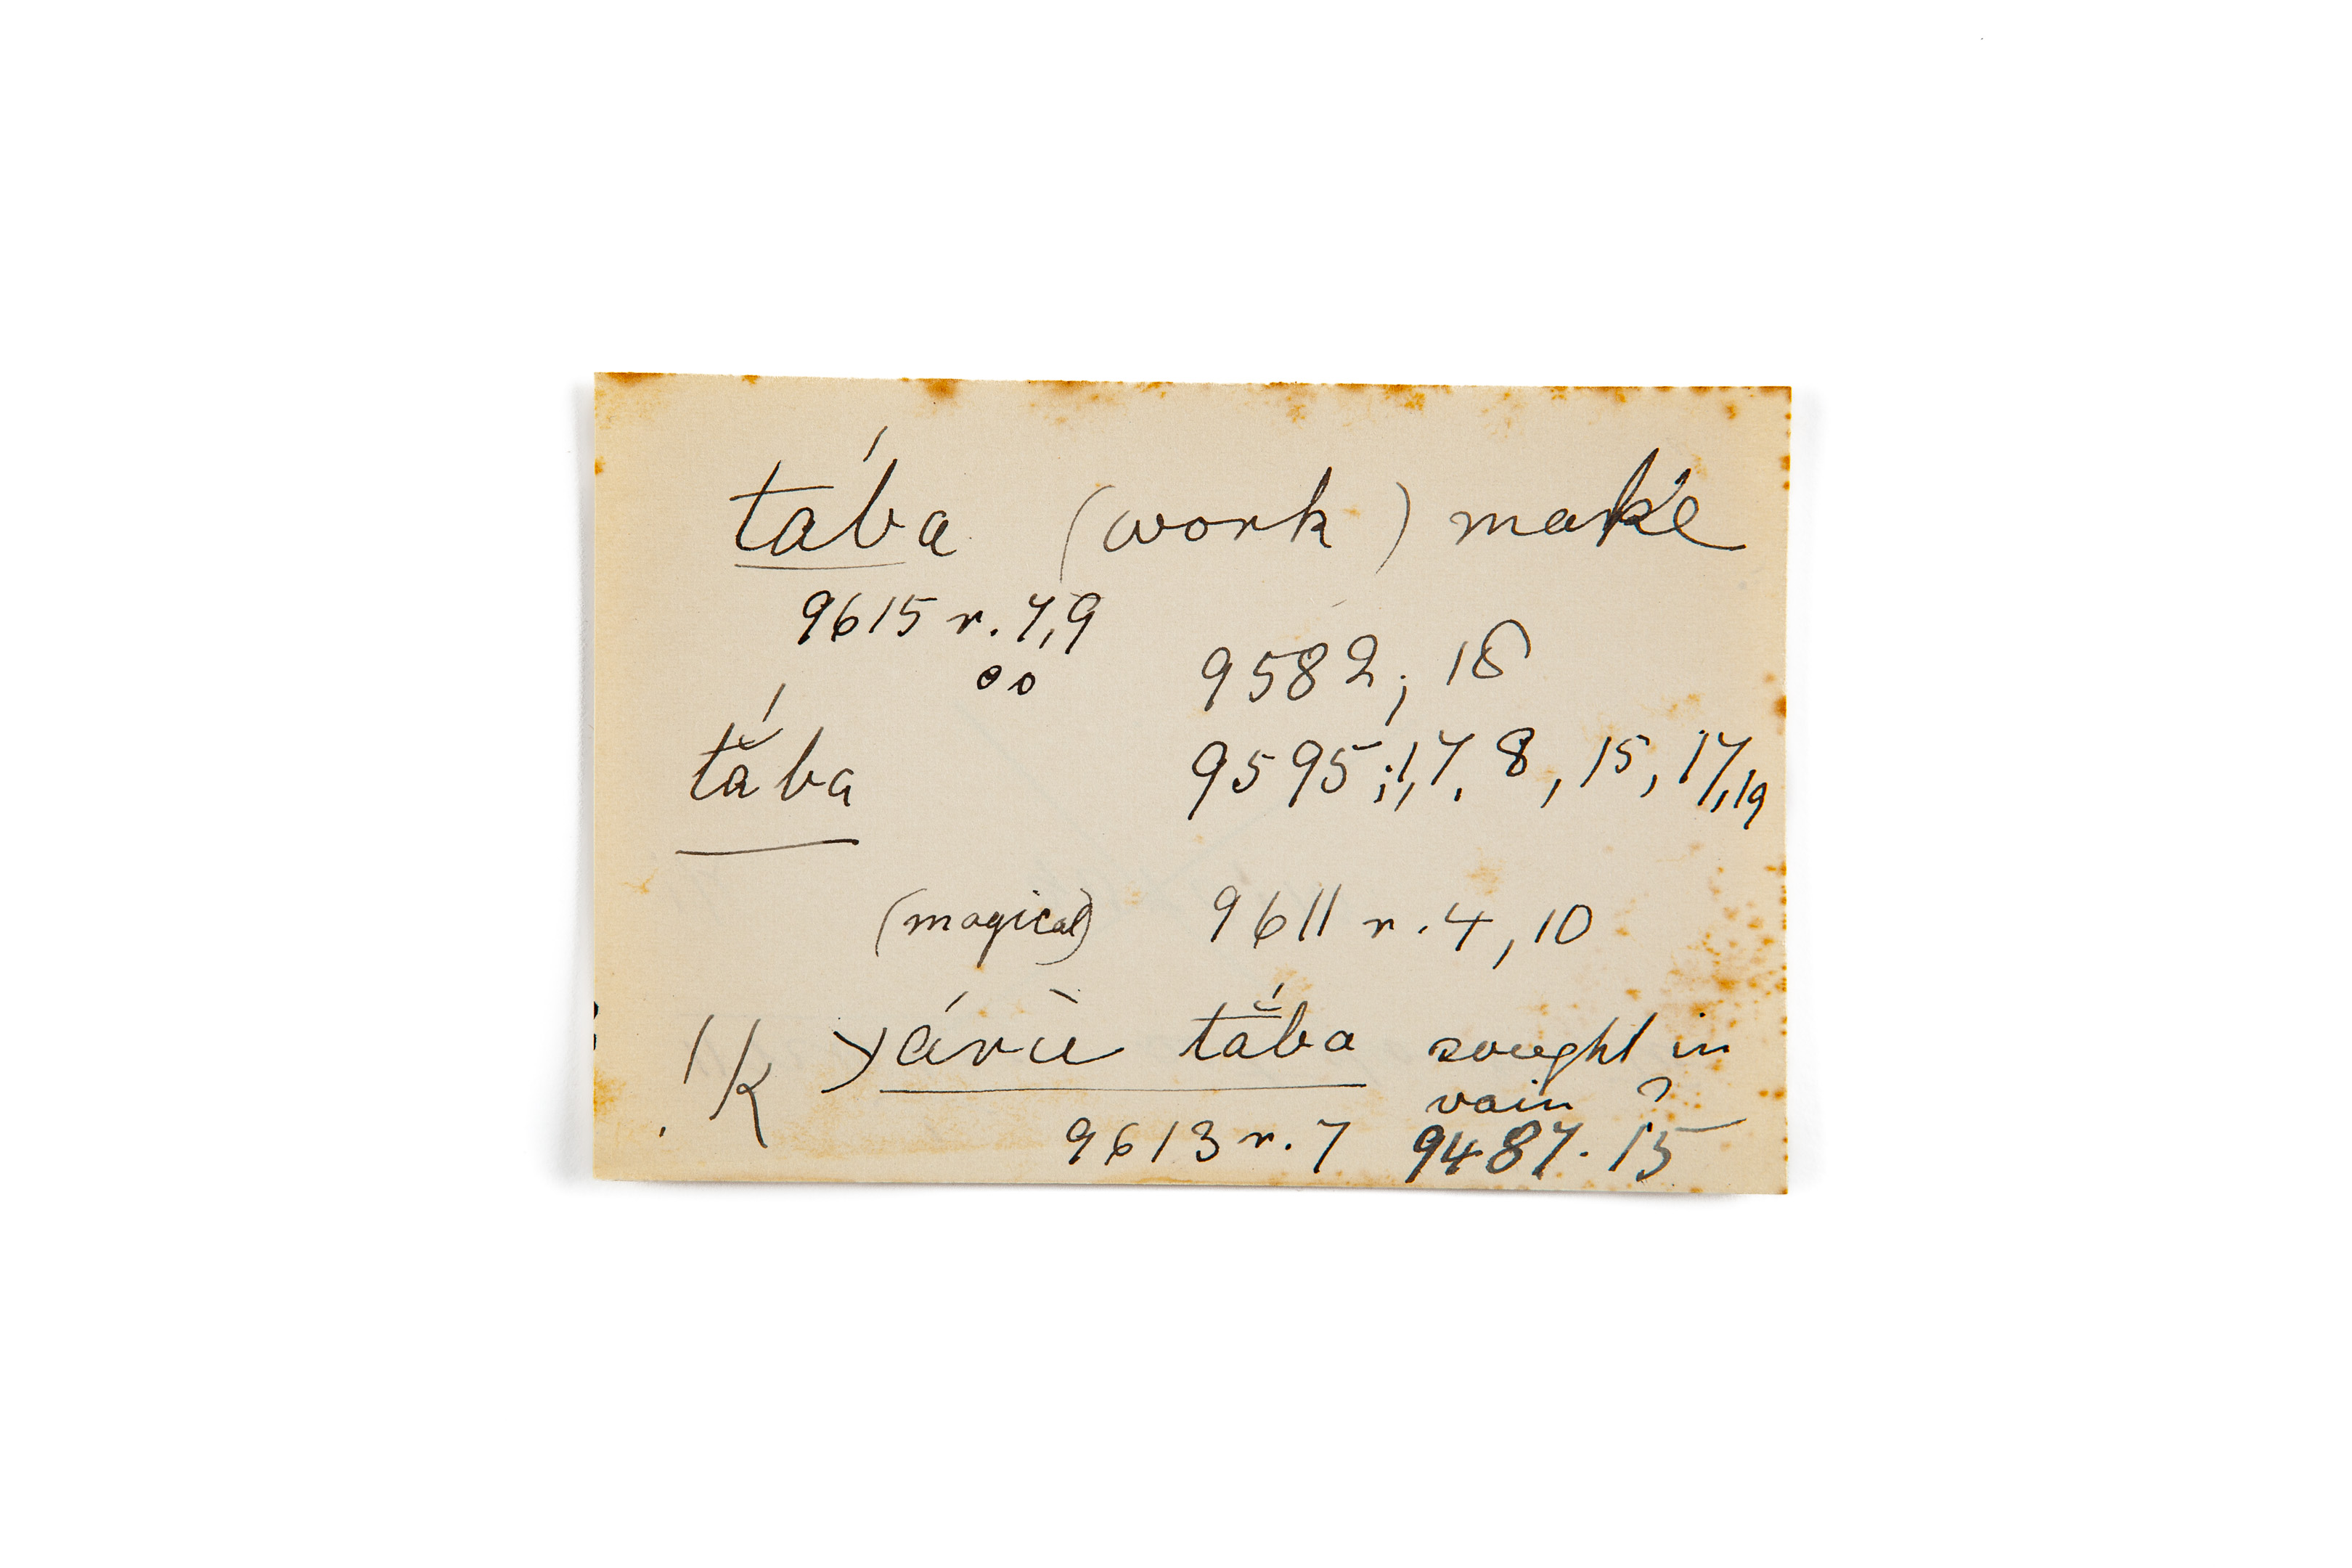 tába (work) make
9615 r. 7,9
oo 9582; 18
tắba 9595; 1, 7. 8, 15, 17, 19
(magical) 9611 r. 4, 10
!k χárù tắba sought in
vain ?
9613 r. 7 9487. 15